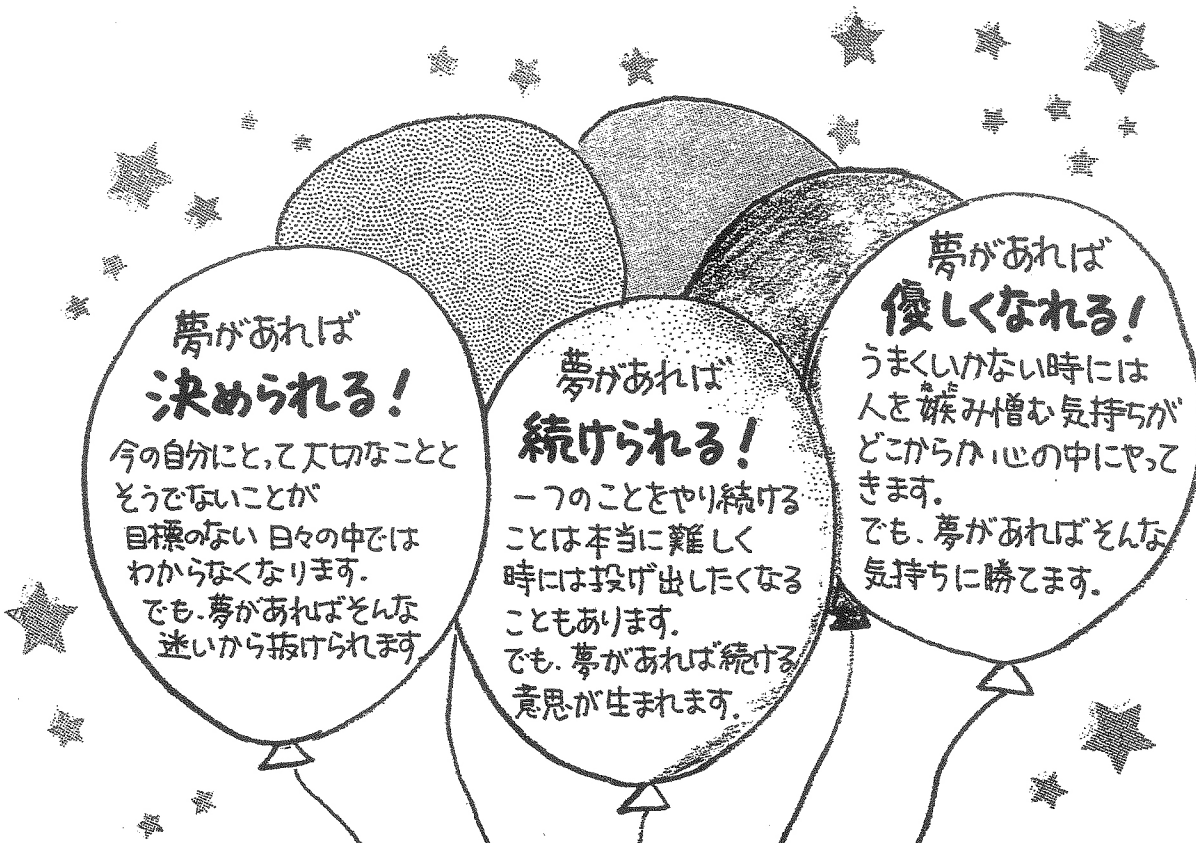 夢があれば
決められる!
今の自分にとって大切なことと
そうでないことが
目標のない日々の中では
わからなくなります.
でも、夢があればそんな
迷いから抜けられます
夢があれば
続けられる!
一つのことをやり続ける
ことは本当に難しく
時には投げ出したくなる
こともあります.
でも、夢があれば続ける
意思が生まれます.
夢があれば
優しくなれる!
うまくいかない時には
人を嫉み憎む気持ちが
どこからか心の中にやって
きます。
でも、夢があればそんな
気持ちに勝てます.